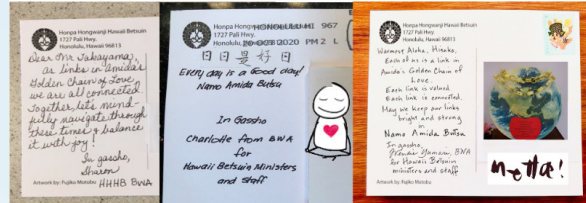 Honpa Hongwanji Hawaii Betsuin
1727 Pali Hwy.
Honolulu, Hawaii 96813
Dear Mr Takayama,
as links in Amida's
Golden Chain of Love,
we are all connected.
Together, let's mind-
fully navigate through
these times & balance
it with joy!
In gassho,
Sharon
HHHB BWA
Artwork by: Fujiko Motobu
Honpa Hongwanji Hawaii Betsuin
1727 Pali Hwy.
Honolulu,
HONOLULU HI 967
20 OCT 2020 PM 2 L
日日是好日
Every day is a Good day!
Namo Amida Butsu
In Gassho
Charlotte from BWA
for
Hawaii Betsuin Ministers
and staff
Honpa Hongwanji Hawaii Betsuin
1727 Pali Hwy.
Honolulu, Hawaii 96813
Warmest Aloha, Hitoka,
Each of us is a link in
Amida's Golden Chain of
Love.
Each link is valued.
Each link is connected.
May we keep our links
bright and strong
Namo Amida Butsu
In gassho,
BWA
for Hawaii Betsuin
ministers and staff
metta!
Artwork by: Fujiko Motobu